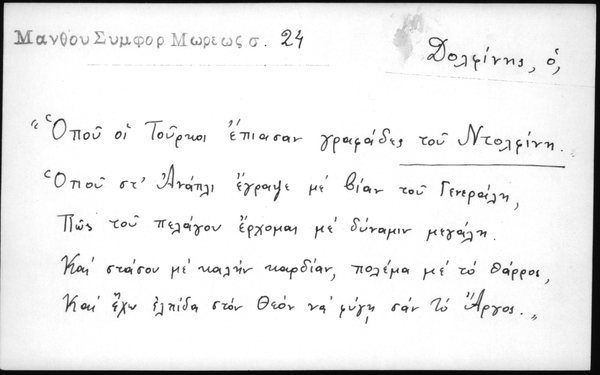 Μανθου Συμφορ Μωρεως σ. 24
Δολφίνης, ὁ,
"Ὁποῦ οἱ Τοῦρκοι ἔπιασαν γραφάδες τοῦ Ντολφίνη.
Ὁποῦ στ' Ἀνάπλι ἔγραψε μέ βίαν τοῦ Γενεράλη,
Πῶς τοῦ πελάγου ἔρχομαι μέ δύναμιν μεγάλη.
Καί στάσου μέ καλήν καρδίαν, πολέμα μέ τό θάρρος,
Καί ἔχω ἐλπίδα στόν Θεόν νά φύγῃ σάν τό Ἄργος."